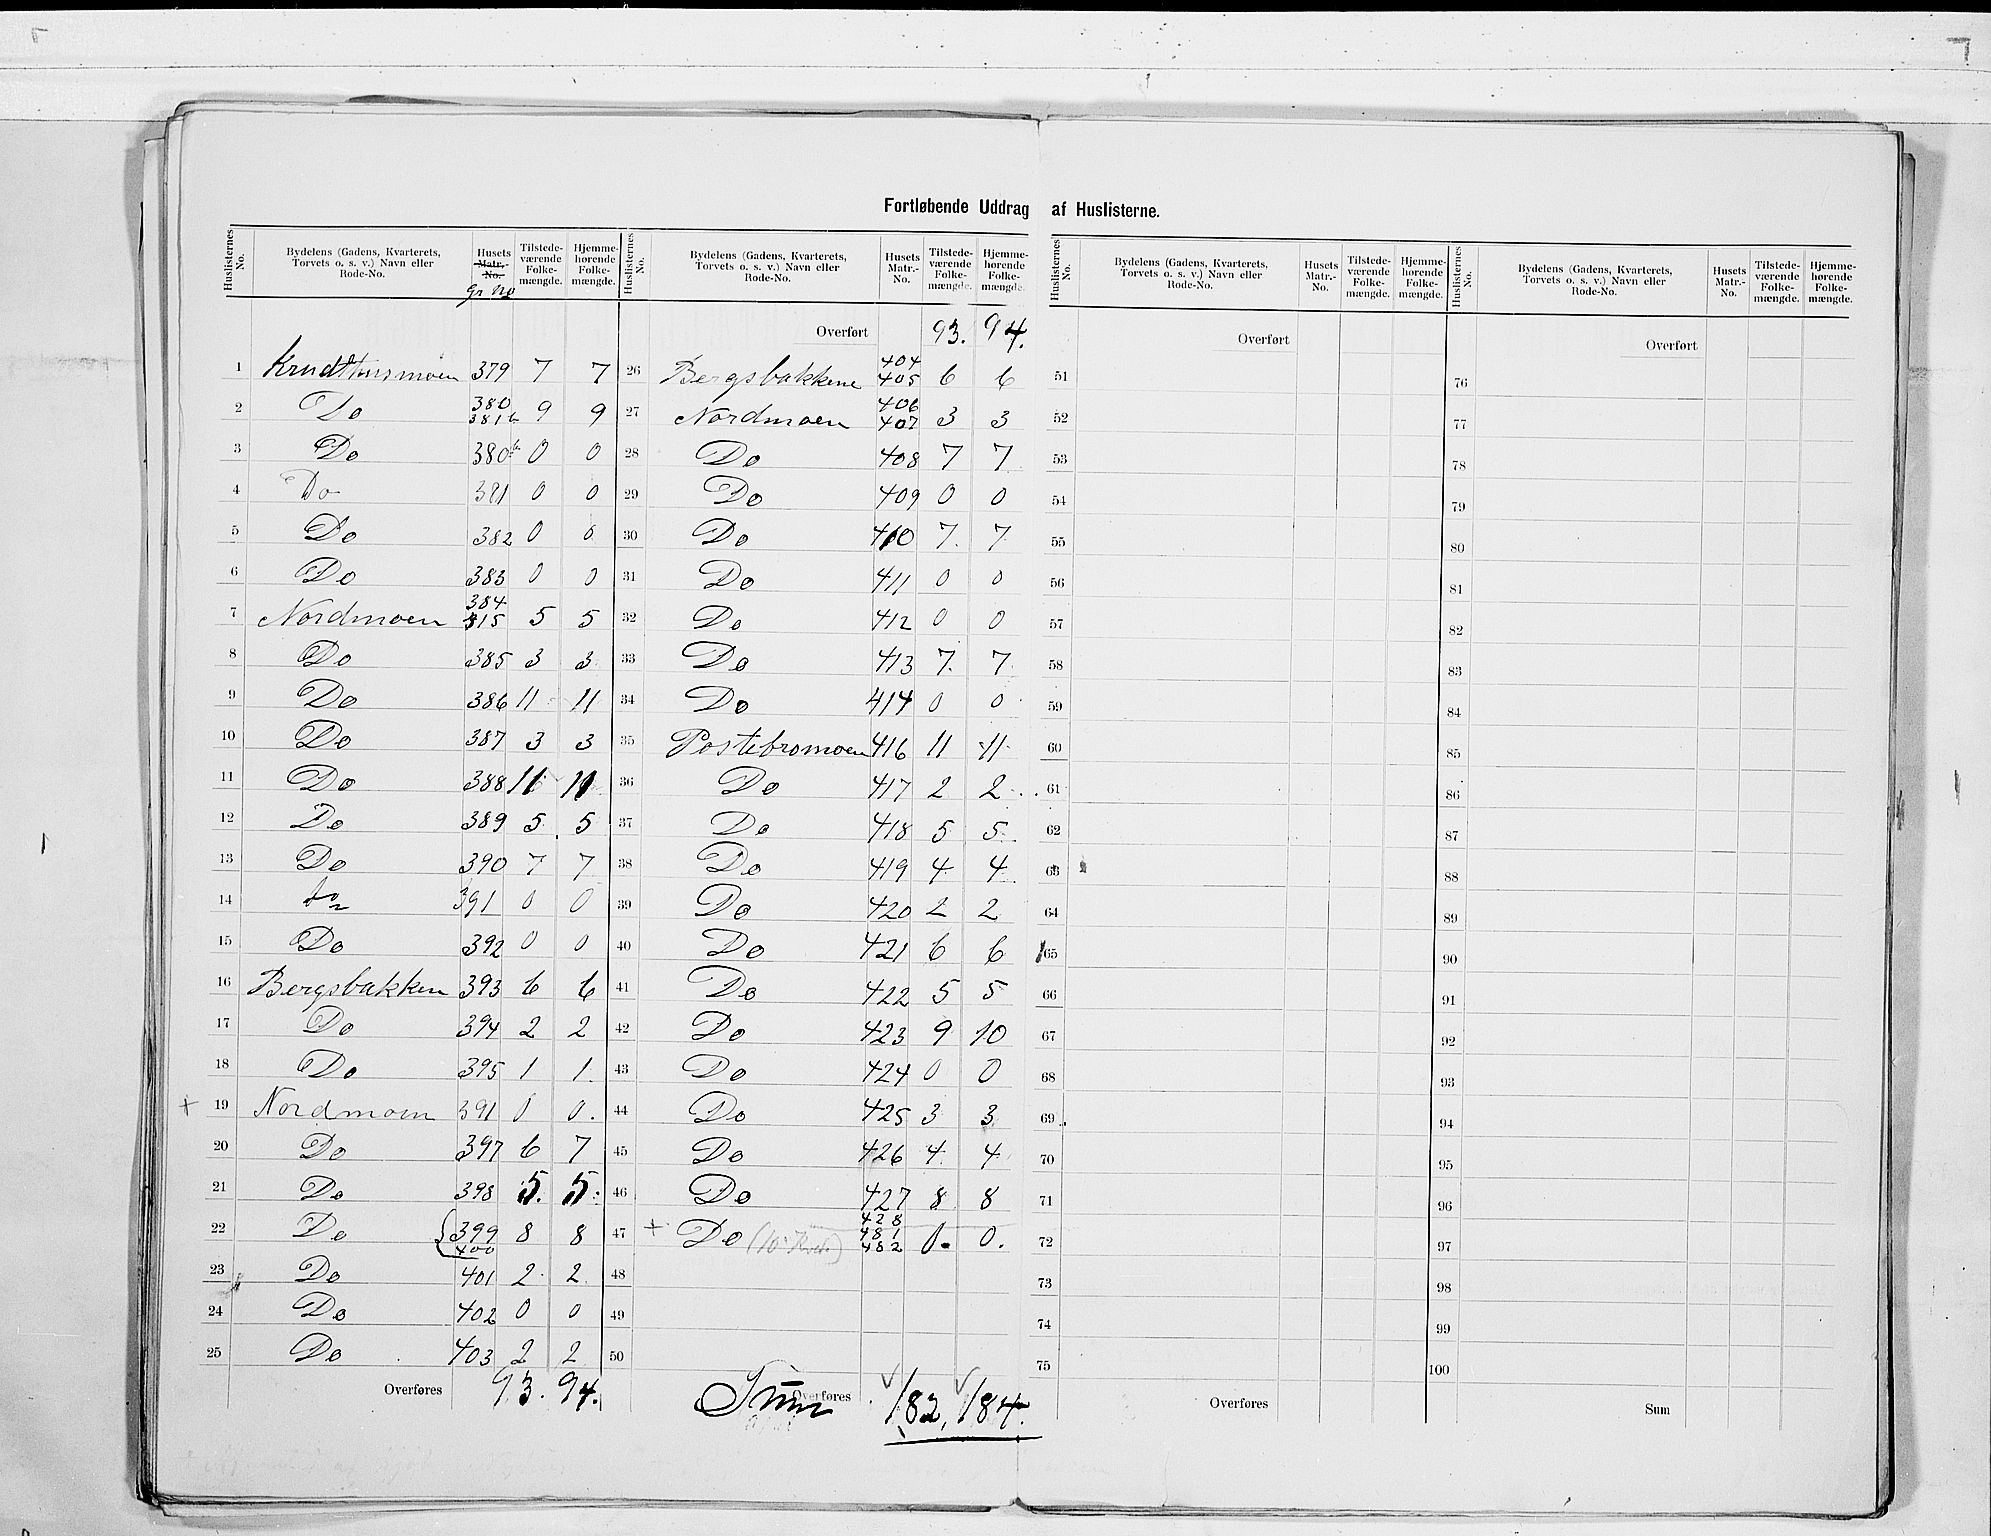 Fortløbende Uddrag af Huslisterne.
Huslisternes No. | Bydelens (Gadens, Kvarterets, Torvets o. s. v.) Navn eller Rode-No. | Husets Matr.-No. Gr No | Tilstedeværende Folkemængde. | Hjemmehørende Folkemængde.
1 Krudthusmoen 379 7 7
2 Do 380 381b 9 9
3 Do 380b 0 0
4 Do 381 0 0
5 Do 382 0 0
6 Do 383 0 0
7 Nordmoen 384 415 5 5
8 Do 385 3 3
9 Do 386 11 11
10 Do 387 3 3
11 Do 388 11 11
12 Do 389 5 5
13 Do 390 7 7
14 Do 391 0 0
15 Do 392 0 0
16 Bergsbakken 393 6 6
17 Do 394 2 2
18 Do 395 1 1
+ 19 Nordmoen 391 0 0.
20 Do 397 6 7
21 Do 398 5. 5.
22 Do {399 400 8 8
23 Do 401 2 2
24 Do 402 0 0
25 Do 403 2 2
Overføres 93. 94.
Huslisternes No. | Bydelens (Gadens, Kvarterets, Torvets o. s. v.) Navn eller Rode-No. | Husets Matr.-No. | Tilstedeværende Folkemængde. | Hjemmehørende Folkemængde.
Overført 93. 94.
26 Bergsbakkene 404 405 6 6
27 Nordmoen 406 407 3 3
28 Do 408 7 7
29 Do 409 0 0
30 Do 410 7. 7
31 Do 411 0 0
32 Do 412 0 0
33 Do 413 7. 7
34 Do 414 0 0
35 Postebromoen 416 11 11
36 Do 417 2 2
37 Do 418 5 5
38 Do 419 4 4
39 Do 420 2 2
40 Do 421 6 6
41 Do 422 5 5
42 Do 423 9 10
43 Do 424 0 0
44 Do 425 3 3
45 Do 426 4 4
46 Do 427 8 8
47 + Do 428 481 482 0. 0.
48
49
50
Overføres Sum 182, 184.
Huslisternes No. | Bydelens (Gadens, Kvarterets, Torvets o. s. v.) Navn eller Rode-No. | Husets Matr.-No. | Tilstedeværende Folkemængde. | Hjemmehørende Folkemængde.
Overført
51
52
53
54
55
56
57
58
59
60
61
62
63
64
65
66
67
68
69
70
71
72
73
74
75
Overføres
Huslisternes No. | Bydelens (Gadens, Kvarterets, Torvets o. s. v.) Navn eller Rode-No. | Husets Matr.-No. | Tilstedeværende Folkemængde. | Hjemmehørende Folkemængde.
Overført
76
77
78
79
80
81
82
83
84
85
86
87
88
89
90
91
92
93
94
95
96
97
98
99
100
Sum